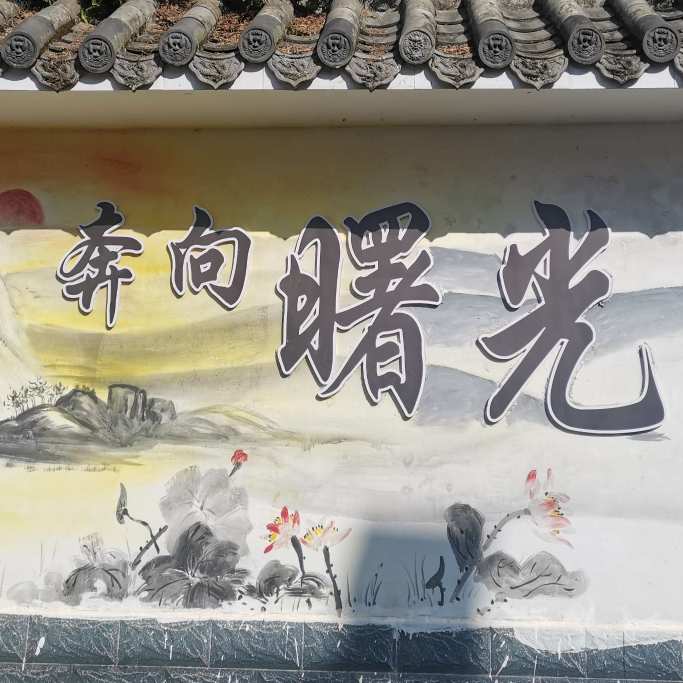 奔向曙光